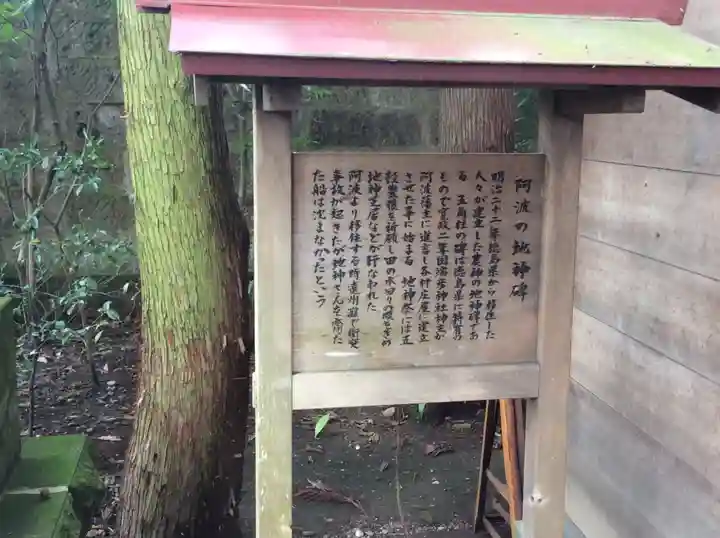 阿波の地神碑
明治二十二年徳島県から移住した
人々が建立した農神の地神碑であ
る 五角柱の碑は徳島県に特有の
もので寛政二年国瑞彦神社神主が
阿波藩主に進言し各村庄屋に建立
させた事に始まる 地神祭には五
穀豊穣を祈願し田の水回りの取きめ
地神芝居などが行なわれた
阿波より移住する時遠州灘で衝突
事故が起きたが地神さんを高った
た船は沈まなかったという